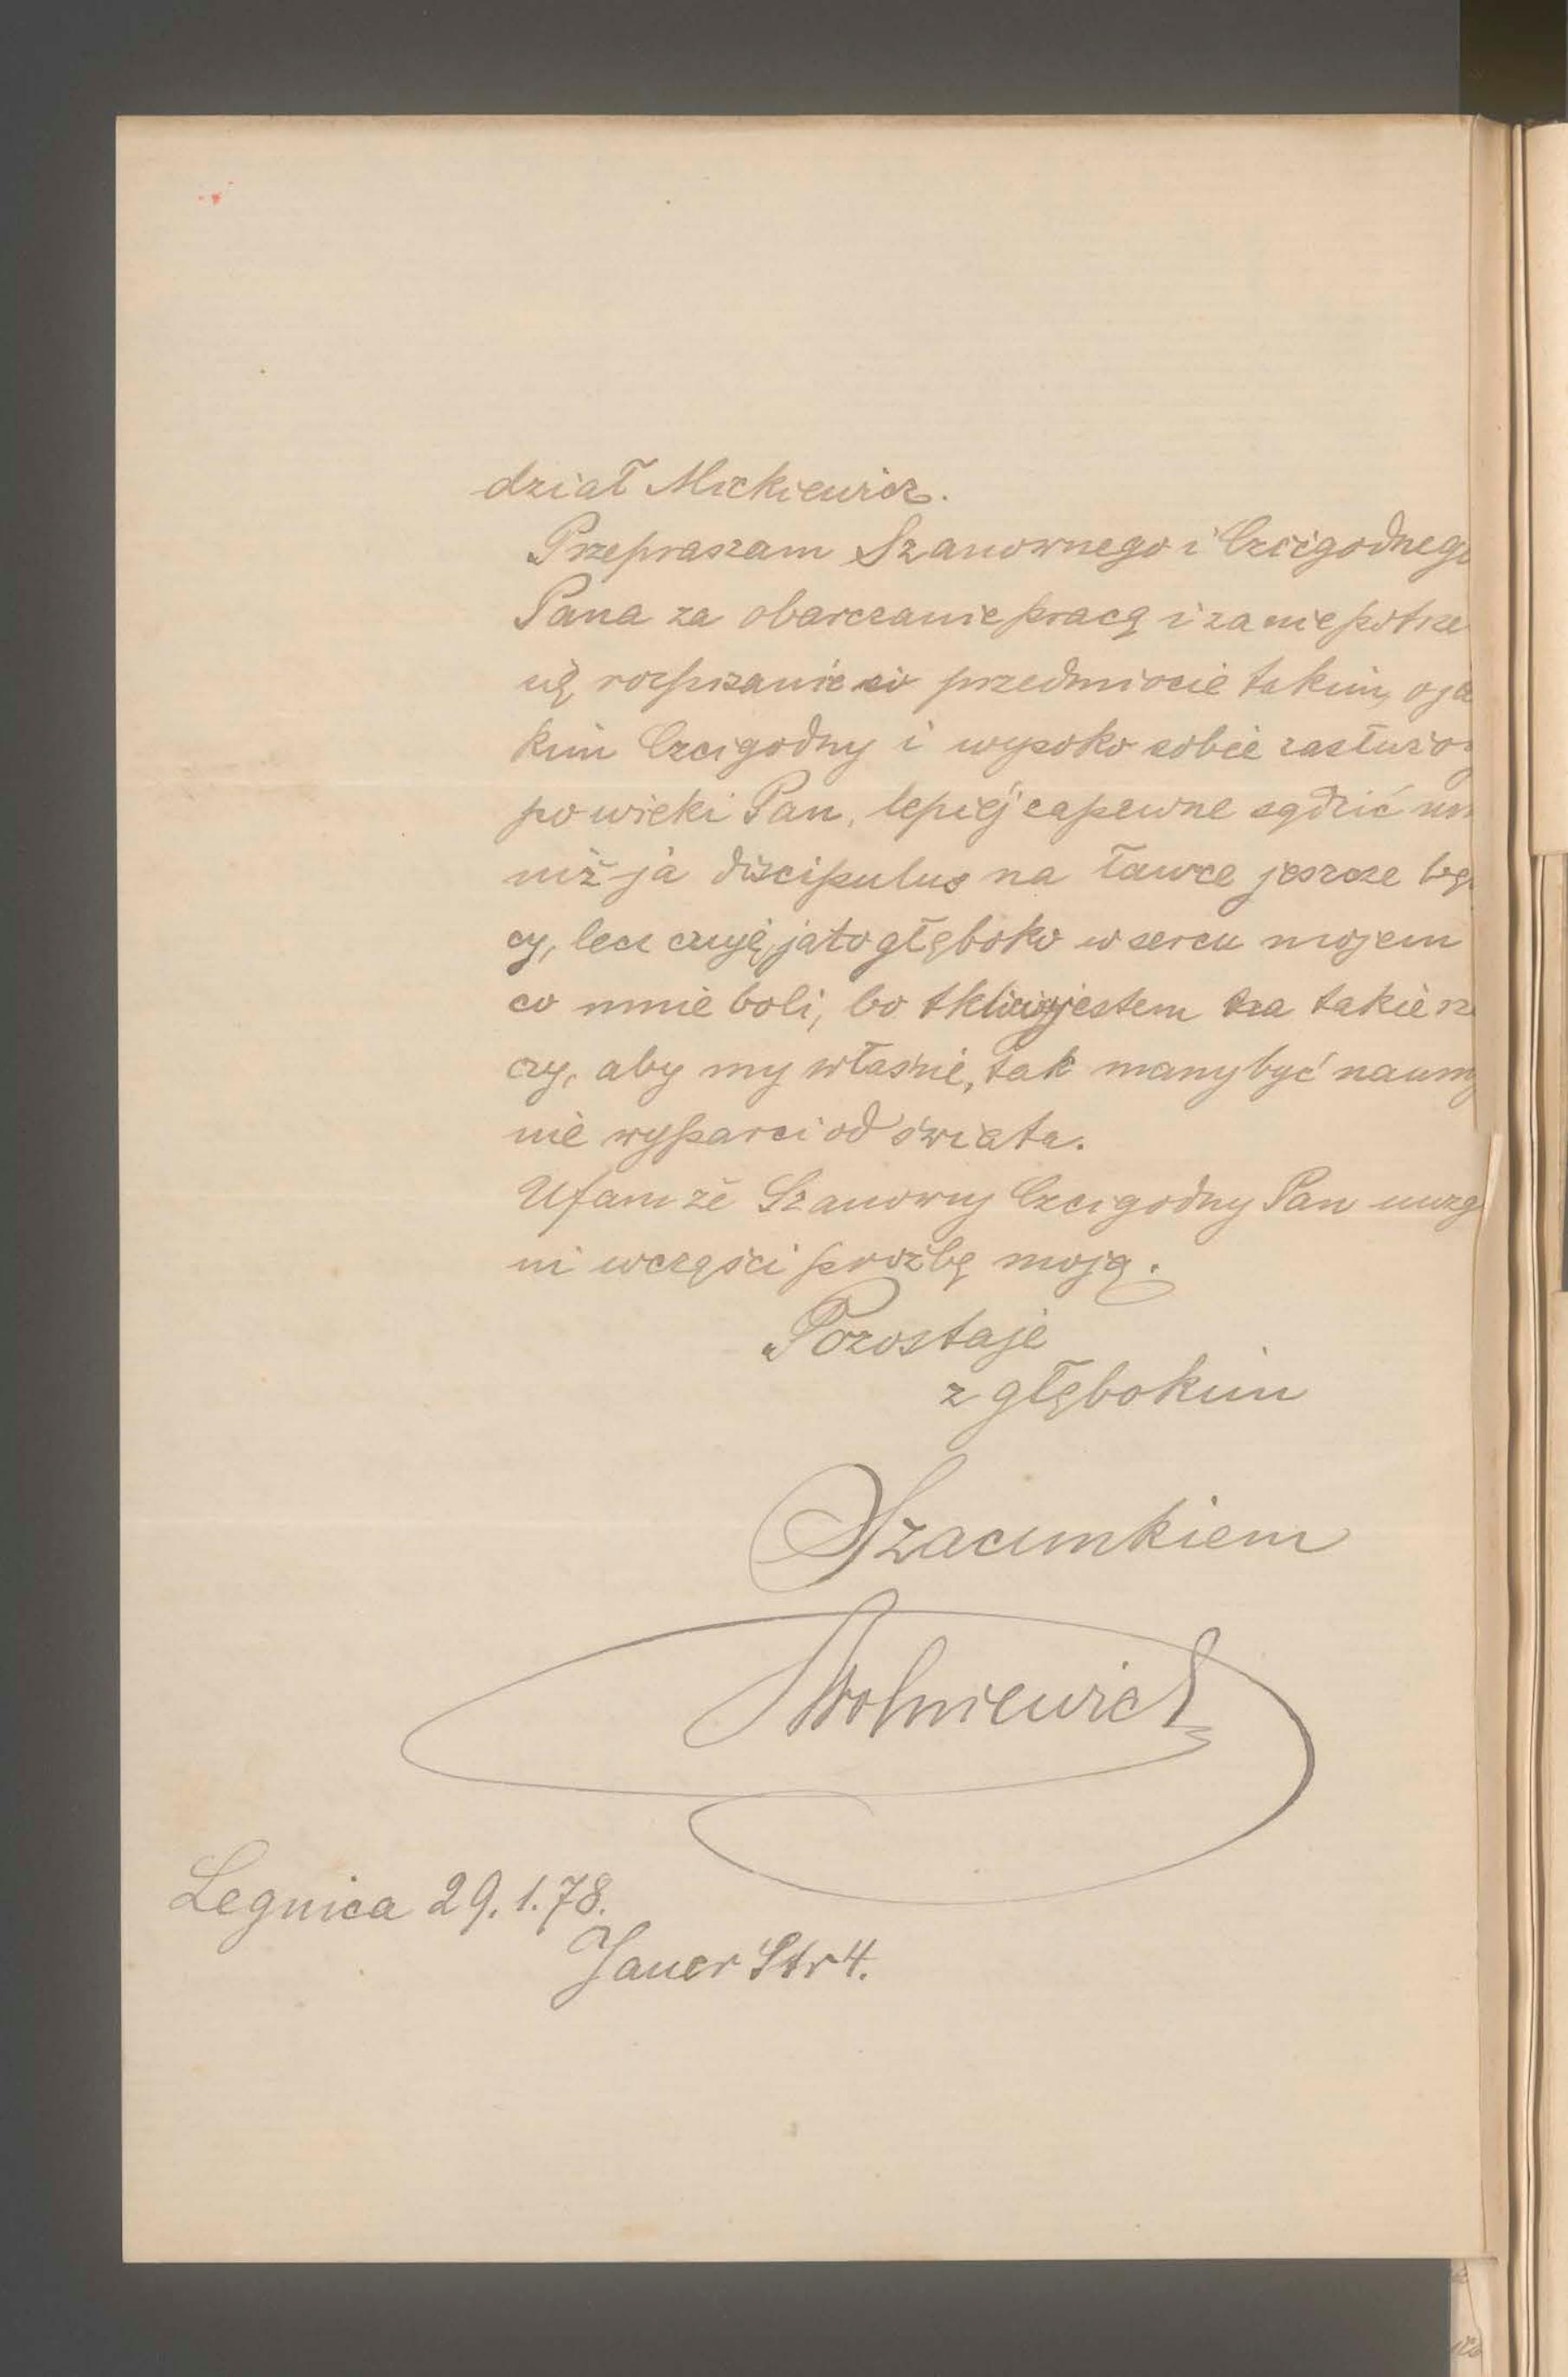 dział Mickiewicz.
Przepraszam Szanownego i Czcigodnego
Pana za obarczanie pracą i za niepotrze
ną rozpisanie o przedmiocie takim, o ja
kim Czcigodny i wysoko sobie zasłużo
po wieki Pan, lepiej zapewne sądzić um
niż ja discipulus na ławce jeszcze będ
cy, lecz czuję ja to głęboko w sercu mojem
co mnie boli, bo tkliwy jestem na takie rze
czy, aby my właśnie, tak mamy być naum
nie wyparci od świata.
Ufam że Szanowny Czcigodny Pan uwzg
ni wczęści prośbę moją.
Pozostaje
z głębokim
Szacunkiem
Wolniewicz
Legnica 29.1.78.
Jauer Str 4.